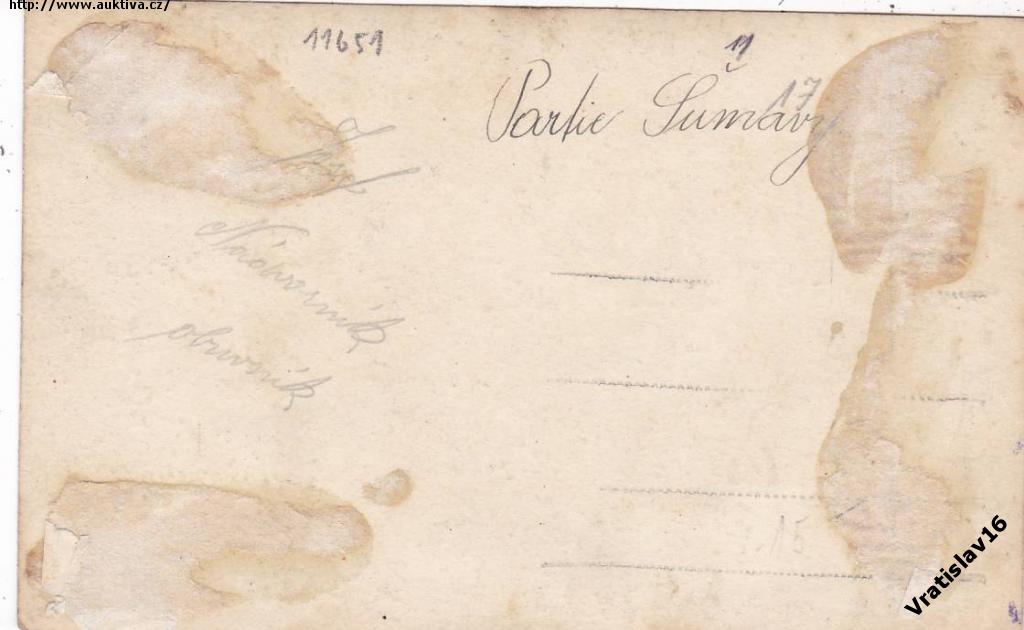 http://www.auktiva.cz/
11651
11
17
Partie Šumavy
Nádvorník
obuvník
15
Vratislav16